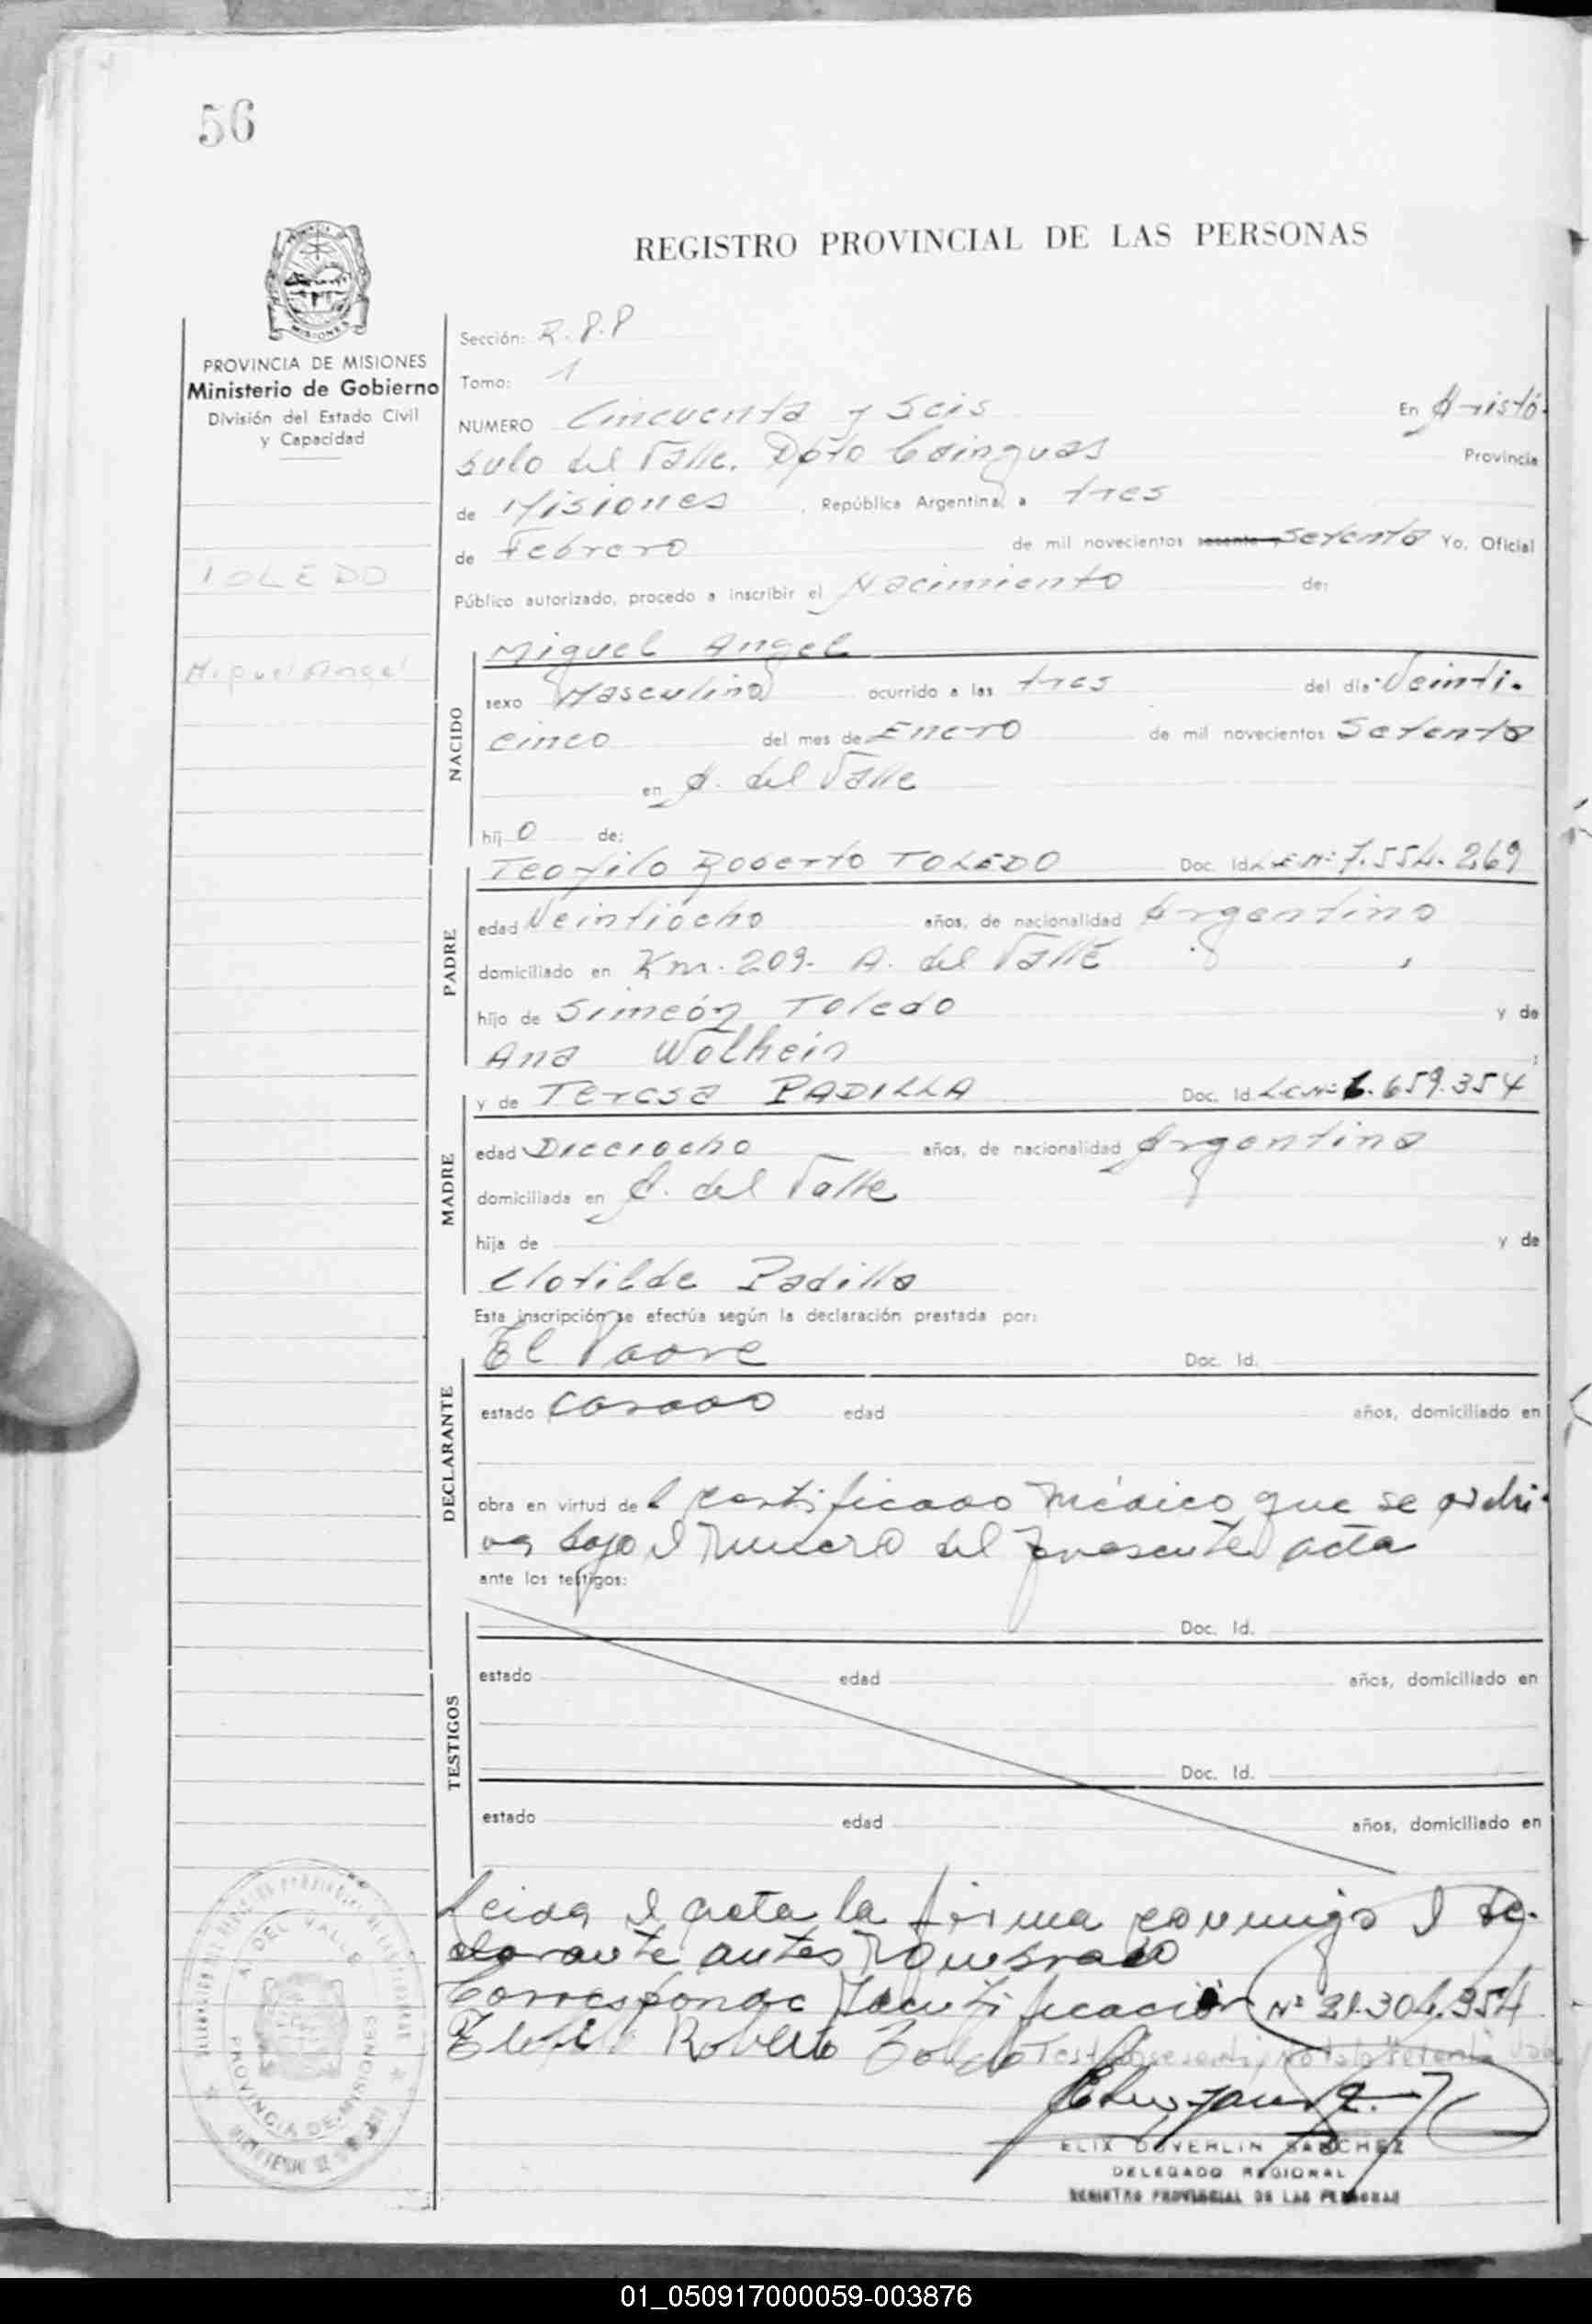 56
REGISTRO PROVINCIAL DE LAS PERSONAS
MISIONES
PROVINCIA DE MISIONES
Ministerio de Gobierno
División del Estado Civil
y Capacidad
TOLEDO
Miguel Angel
Sección: R.P.P
Tomo: 1
NUMERO Cincuenta y Seis En Aristó-
bulo del Valle. Dpto Cainguas Provincia
de Misiones, República Argentina, a tres
de Febrero de mil novecientos sesenta y Setenta Yo, Oficial
Público autorizado, procedo a inscribir el Nacimiento de:
NACIDO
Miguel Angel
sexo Masculino ocurrido a las tres del día Veinti-
cinco del mes de Enero de mil novecientos Setenta
en A. del Valle
hijo de:
PADRE
Teofilo Roberto TOLEDO Doc. Id. L.E.Nº 7.554.269
edad Veintiocho años, de nacionalidad Argentino
domiciliado en Km. 209. A. del Valle
hijo de Simeón Toledo y de
Ana Wolhein
MADRE
y de Teresa PADILLA Doc. Id. L.C.Nº 6.659.354
edad Dieciocho años, de nacionalidad Argentina
domiciliada en A. del Valle
hija de y de
Clotilde Padilla
Esta inscripción se efectúa según la declaración prestada por:
DECLARANTE
El Padre Doc. Id.
estado casado edad años, domiciliado en
obra en virtud del certificado médico que se archi-
va bajo el numero del presente acta
ante los testigos:
TESTIGOS
Doc. Id.
estado edad años, domiciliado en
Doc. Id.
estado edad años, domiciliado en
Leida el acta la firma conmigo el de-
clarante antes nombrado
Corresponde Identificación Nº 21.304.954
Roberto Toledo
A. DEL VALLE
PROVINCIA DE MISIONES
ELIX DUVERLIN SANCHEZ
DELEGADO REGIONAL
REGISTRO PROVINCIAL DE LAS PERSONAS
01_050917000059-003876